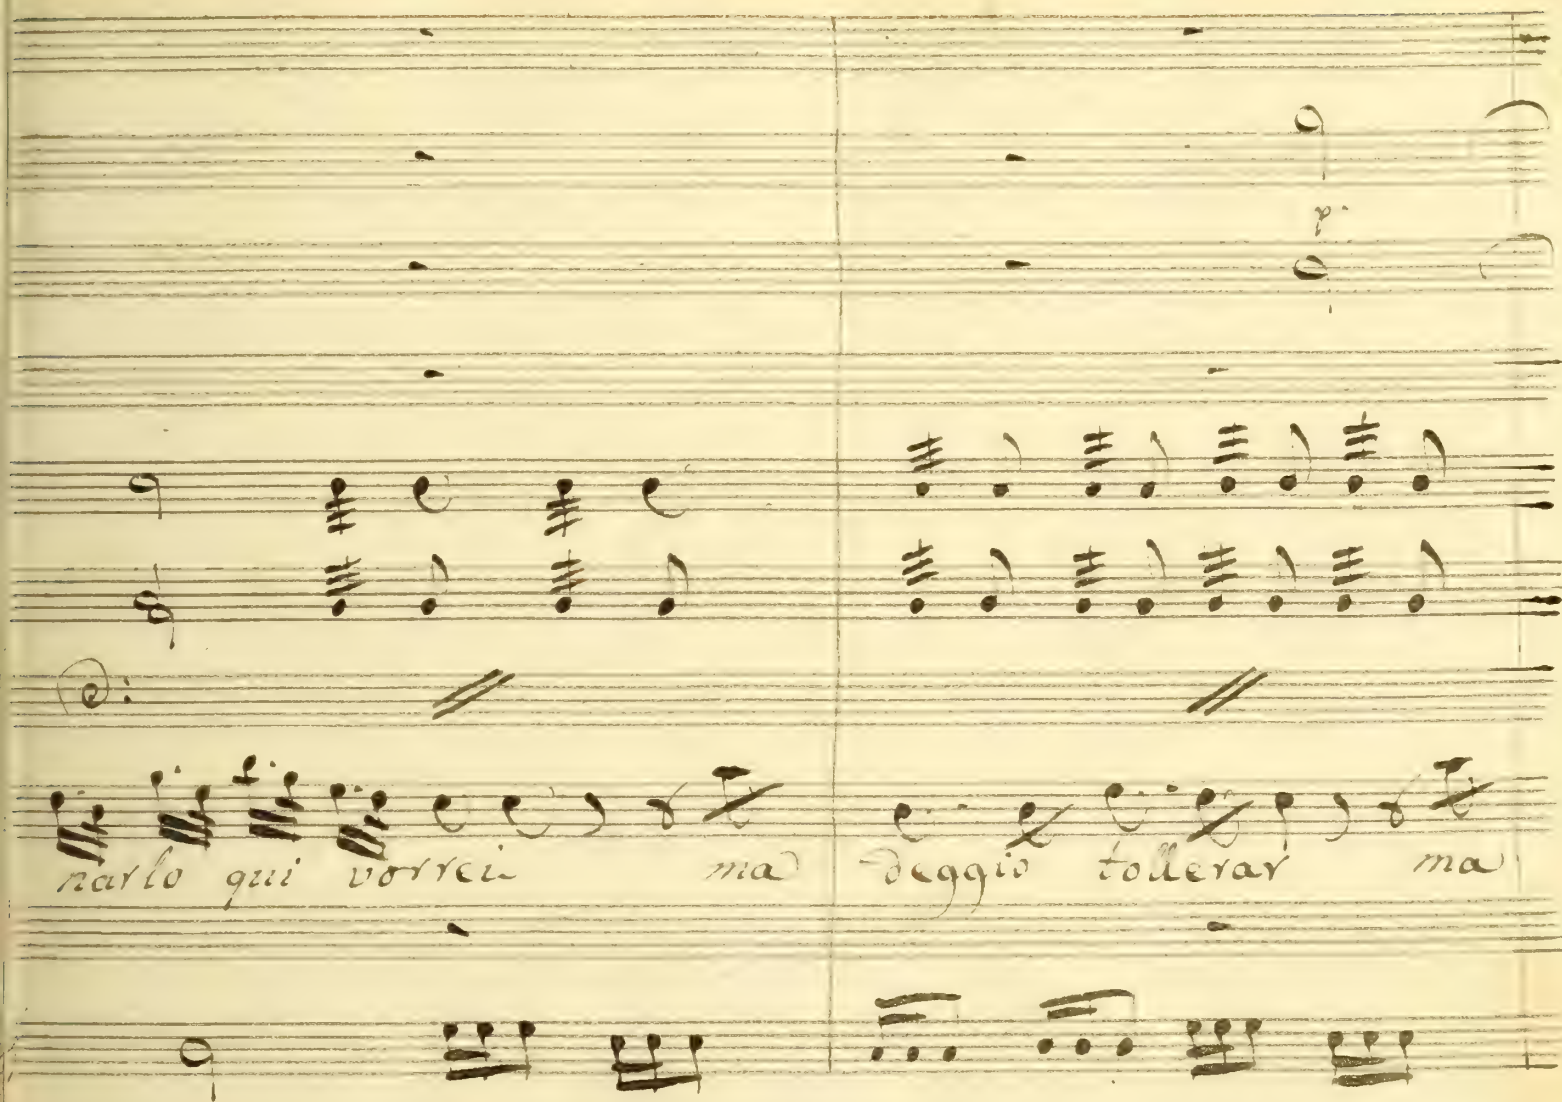 p.
narlo qui vorrei ma deggio tollerar ma